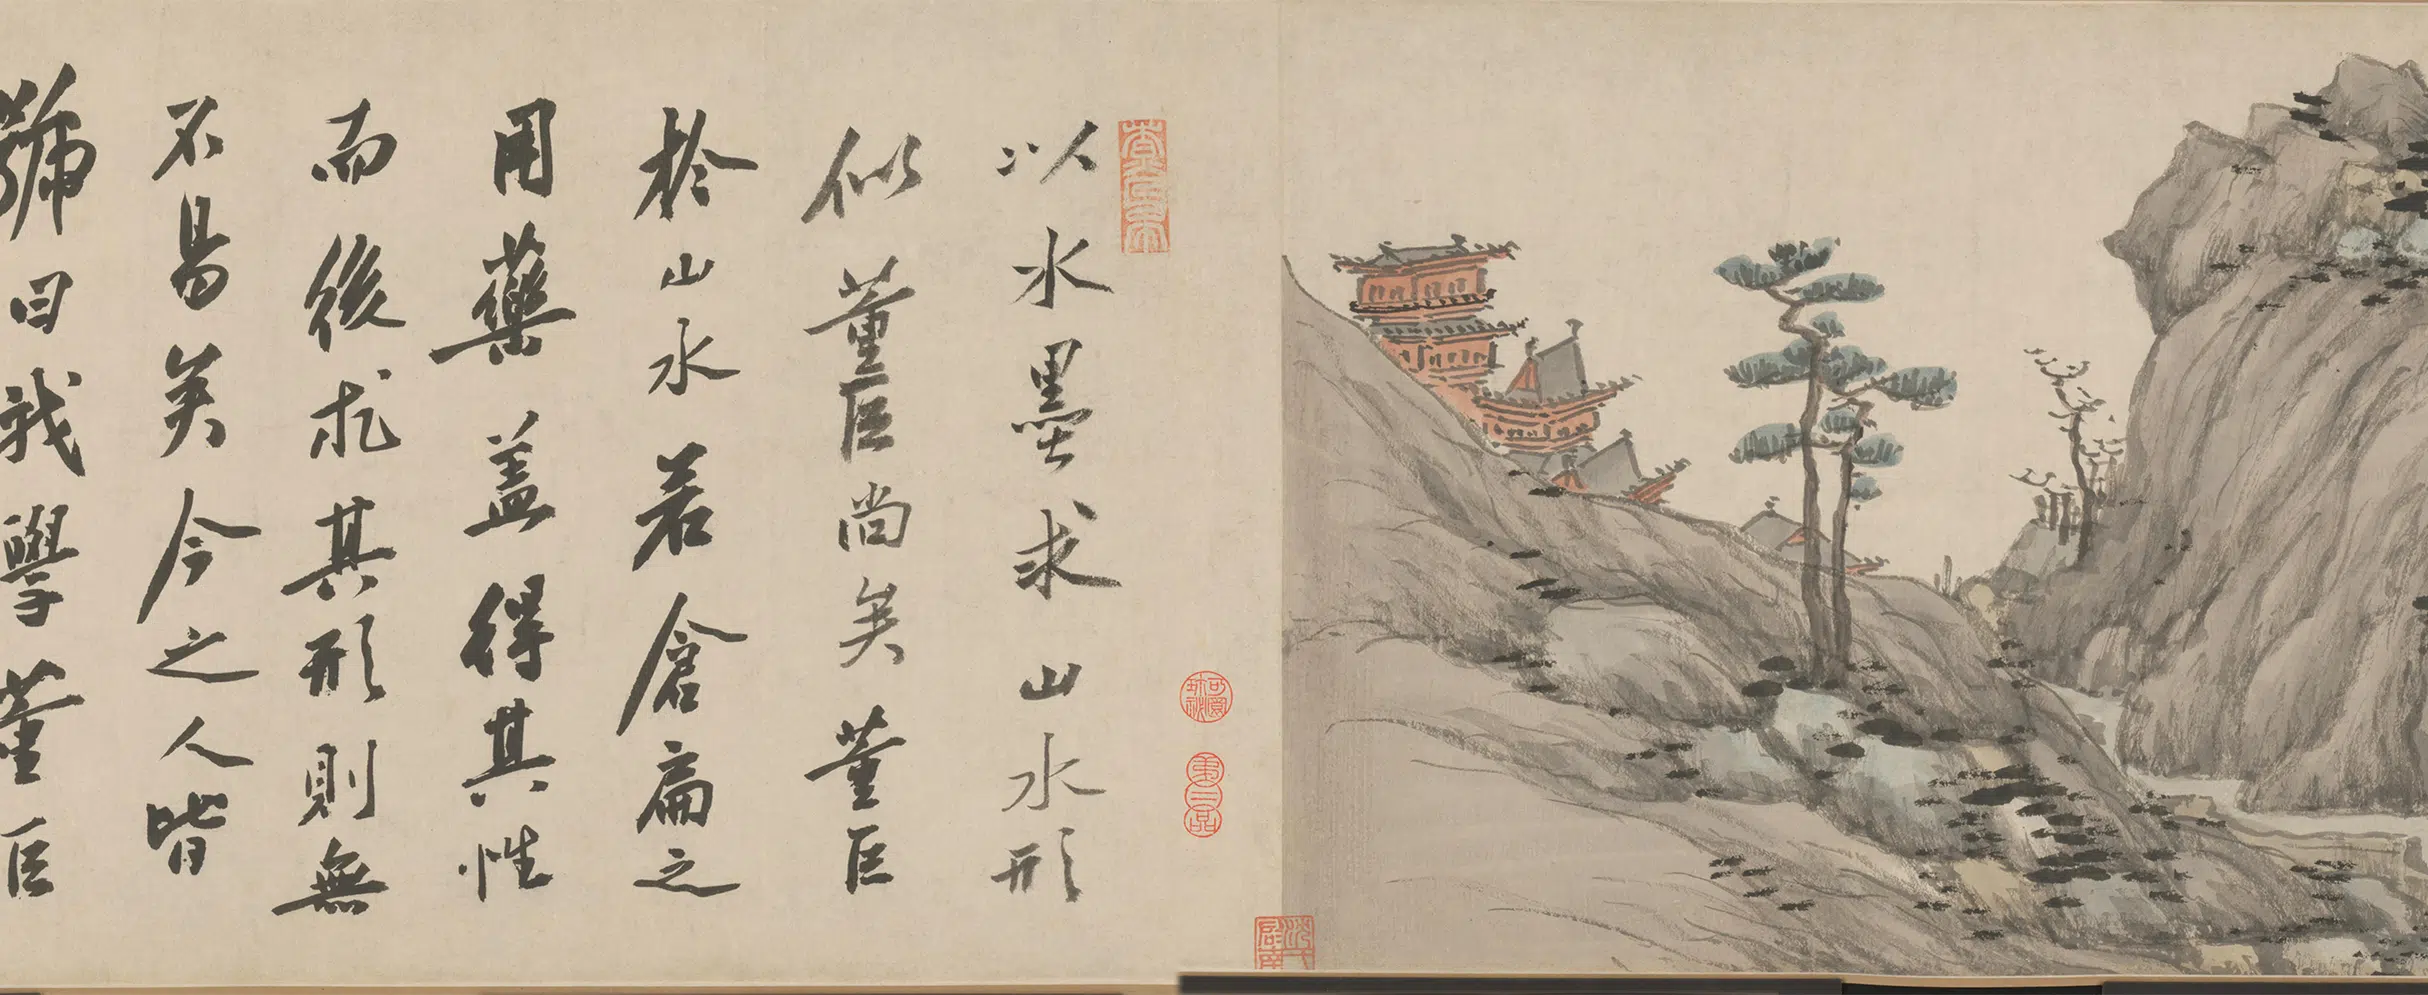 以水墨求山水形
似董巨尚矣董巨
於山水若倉扁之
用藥盖得其性
而後求其形則無
不易矣今之人皆
號曰我學董巨